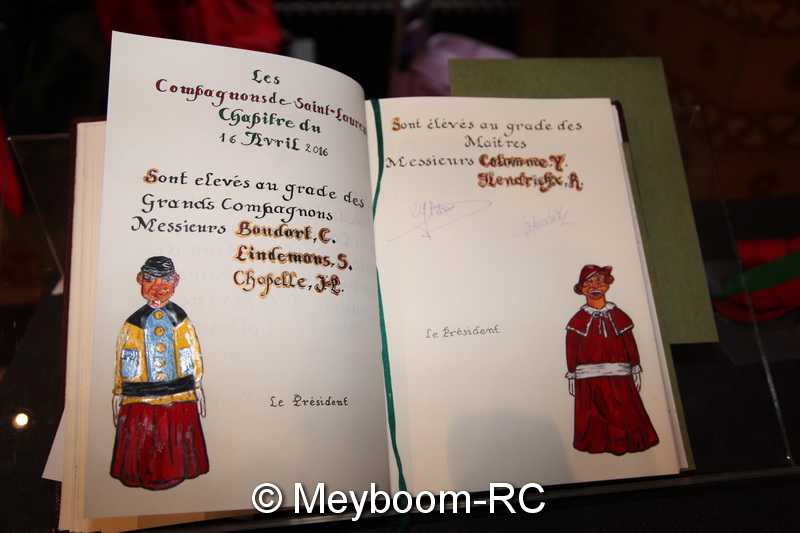 Les
Compagnons de Saint-Lauren
Chapitre du
16 Avril 2016
Sont elevés au grade des
Grands Compagnons
Messieurs Boudart, C.
Lindemans, S.
Chapelle, J-L.
Le Président
Sont élévés au grade des
Maîtres
Messieurs Colomme Y.
Hendrickx, R.
Le Président
© Meyboom-RC